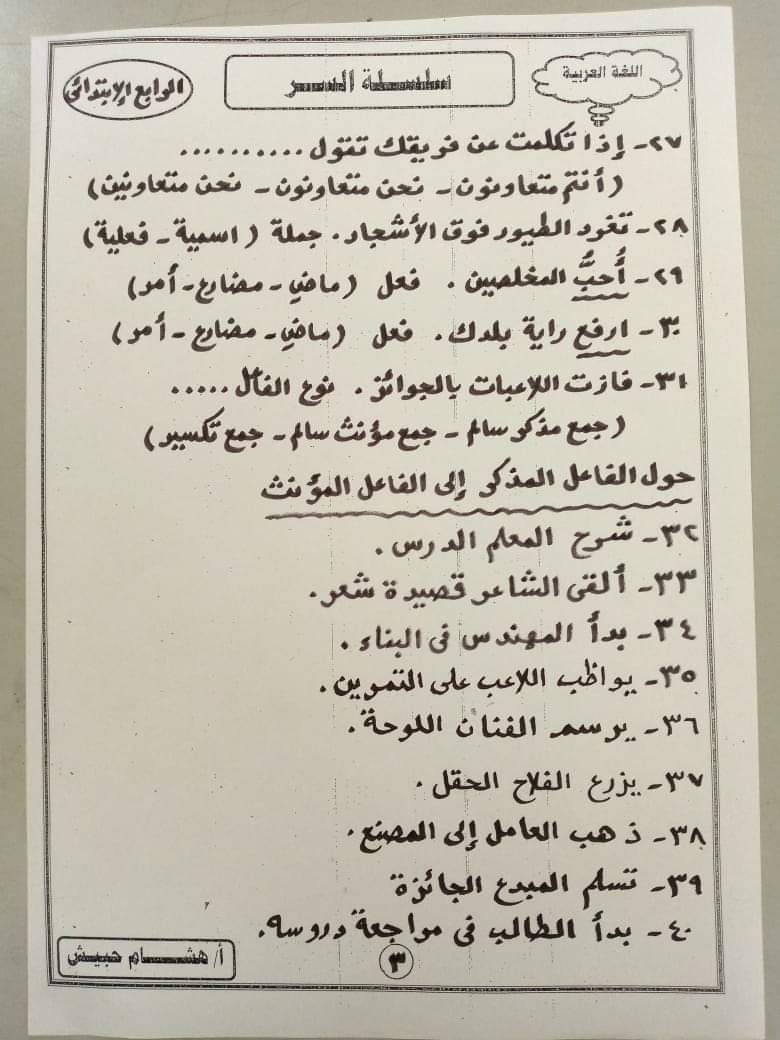 اللغة العربية
سلسلة السر
الرابع الإبتدائى
٢٧- إذا تكلمت عن فريقك تقول ..........
(أنتم متعاونون - نحن متعاونون - نحن متعاونين)
٢٨- تغرد الطيور فوق الأشجار. جملة (اسمية - فعلية)
٢٩- أُحبُّ المخلصين. فعل (ماضي - مضارع - أمر)
٣٠- ارفع راية بلدك. فعل (ماضي - مضارع - أمر)
٣١- فازت اللاعبات بالجوائز. نوع الفاعل .....
(جمع مذكر سالم - جمع مؤنث سالم - جمع تكسير)
حول الفاعل المذكر إلى الفاعل المؤنث
٣٢- شرح المعلم الدرس.
٣٣- ألقى الشاعر قصيدة شعر.
٣٤- بدأ المهندس فى البناء.
٣٥- يواظب اللاعب على التمرين.
٣٦- يرسم الفنان اللوحة.
٣٧- يزرع الفلاح الحقل.
٣٨- ذهب العامل إلى المصنع.
٣٩- تسلم المبدع الجائزة
٤٠- بدأ الطالب فى مراجعة دروسه.
٣
أ/ هشام حبيش